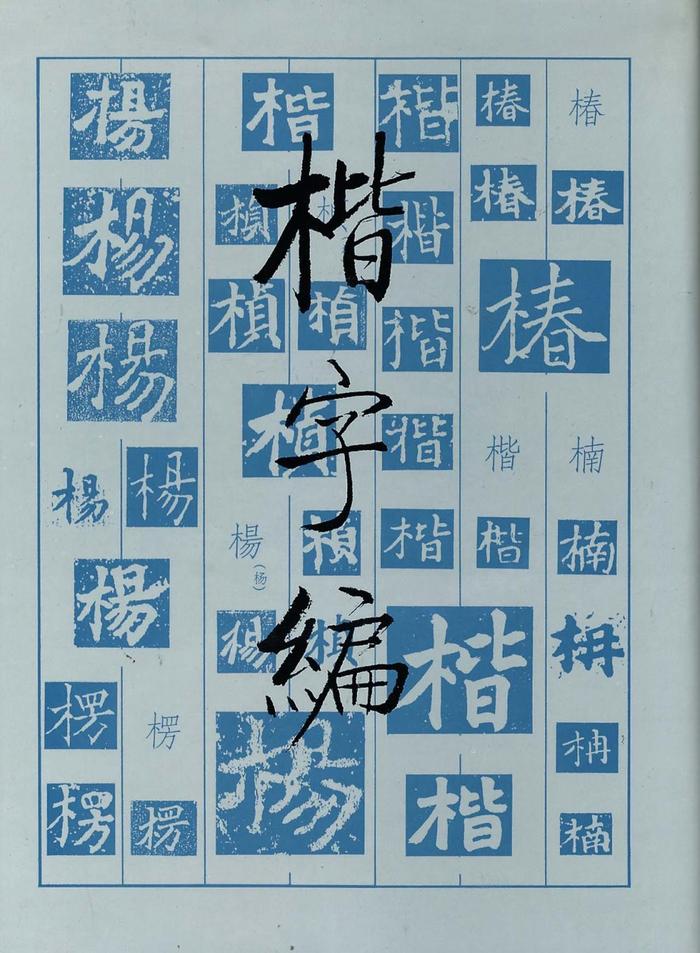 楷字編
椿
椿
椿
椿
椿
楠
楠
枏
柟
楠
楷
楷
楷
楷
楷
楷
楷
楷
楷
楷
楨
楨
楨
楨
楨
楨
楨
楊
(杨)
楊
楊
楊
楊
楊
楊
楊
楊
楞
楞
楞
楞